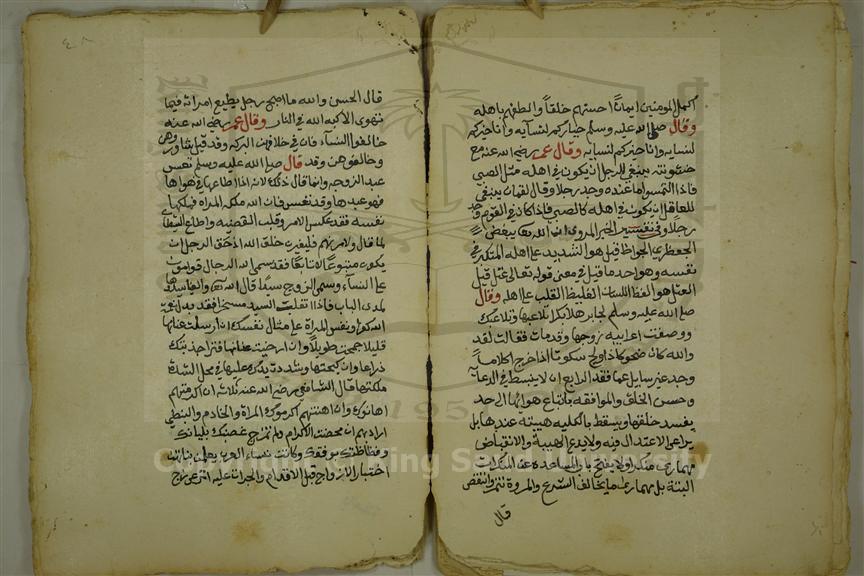 اكمل المومنين ايمانا احسنهم خلقا والطفهم باهله
وقال صلى الله عليه وسلم خياركم خيركم لنسايه وانا خيركم
لنسايه وانا خيركم لنسايه وقال عمر رضي الله عنه مع
خشونته ينبغي للرجل ان يكون في اهله مثل الصبي
فاذا التمسوا ما عنده وجد رجلا وقال لقمان ينبغي
للعاقل ان يكون في اهله كالصبي فاذا كان في القوم وجد
رجلا وفي تفسير الخبر المروي ان الله يبغض
الجعظري الجواظ قيل هو الشديد على اهله المتكبر في
نفسه وهو احد ما قيل في معنى قوله تعالى عتل قيل
العتل هو الفظ اللسان الغليظ القلب على اهله وقال
صلى الله عليه وسلم لجابر هلا بكرا تلاعبها وتلاعبك
ووصفت اعرابيه زوجها وقد مات فقالت لقد
والله كان ضحوكا اذا ولج سكوتا اذا خرج اكلا ما
وجد غير سايل عما فقد الرابع ان لا ينبسط في الدعابه
وحسن الخلق والموافقه باتباع هواها الى حد
يفسد خلقها ويسقط بالكليه هيبته عندها بل
يراعي الاعتدال فيه ولا يدع الهيبة والانقباض
مهما راى منكرا ولا يفتح باب المساعده على المنكرات
البتة بل مهما راى ما يخالف الشرع والمروة تنمر وانتفض
قال
قال الحسن والله ما اصبح رجل يطيع امراته فيما
تهوى الا كبه الله في النار وقال عمر رضي الله عنه
خالفوا النسآء فان في خلافهن البركه وقد قيل شاوروهن
وخالفوهن وقد قال صلى الله عليه وسلم تعس
عبد الزوجه وانما قال ذلك لانه اذا اطاعها في هواها
فهو عبدها وقد تعس فان الله ملكه المراه فملكها
نفسه فقد عكس الامر وقلب القضيه واطاع الشيطان
لما قال ولامرنهم فليغيرن خلق الله اذ حق الرجل ان
يكون متبوعا لا تابعا فقد سمى الله الرجال قوامون
على النسآء وسمى الزوج سيدا قال الله والفيا سيدها
لدى الباب فاذا انقلب السيد مسخرا فقد بدل نعمة
الله كفرا ونفس المراة على مثال نفسك ان ارسلت عنانها
قليلا جمحت طويلا وان ارخيت عذارها فترا جذبتك
ذراعا وان كبحتها وشددت يدك عليها في محل الشدة
ملكتها قال الشافعي رضي الله عنه ثلاثه ان اكرمتهم
اهانوك وان اهنتهم اكرموك المراة والخادم والنبطي
اراد به ان محضت الاكرام ولم تمزج غضبك بليانك
وفظاظتك برفقك وكانت نساء العرب يعلمن بناتهن
اختبار الازواج قبل الاقدام والجراة عليه انزعي زج
Copyright © King Saud University